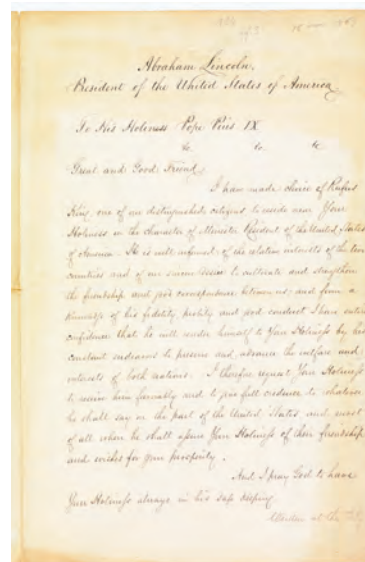 Abraham Lincoln,
President of the United States of America,
To His Holiness Pope Pius IX
&c &c &c
Great and Good Friend,
I have made choice of Rufus
King, one of our distinguished citizens to reside near Your
Holiness in the character of Minister Resident of the United States
of America. He is well informed of the relative interests of the two
countries and of our sincere desire to cultivate and strengthen
the friendship and good correspondence between us; and from a
knowledge of his fidelity, probity and good conduct I have entire
confidence that he will render himself to Your Holiness by his
constant endeavors to preserve and advance the welfare and
interests of both nations. I therefore request Your Holiness
to receive him favorably and to give full credence to whatever
he shall say on the part of the United States and most
of all when he shall assure Your Holiness of their friendship
and wishes for your prosperity.
And I pray God to have
Your Holiness always in his safe keeping.
Written at the City